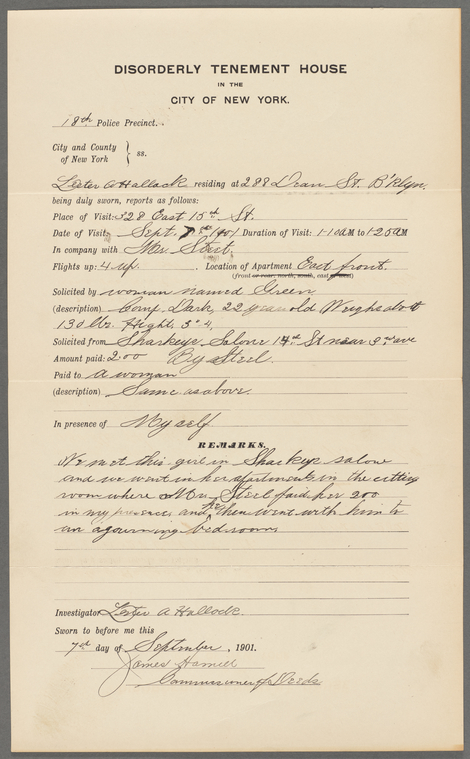 DISORDERLY TENEMENT HOUSE
IN THE
CITY OF NEW YORK.
18th Police Precinct.
City and County
of New York } ss.
Lester A Hallock residing at 288 Dean St. B'klyn.
being duly sworn, reports as follows:
Place of Visit: 328 East 15th St.
Date of Visit: Sept. 7th 1901 Duration of Visit: 1-10AM to 1-25AM
In company with Mr
Flights up: 4 up. Location of Apartment East front.
(front or rear, north, south, east or west)
Solicited by woman named Green
(description) Comp. Dark, 22 years old Weighs about
130 lbs. Hight. 5-4,
Solicited from Sharkeys Salone 14th St near 3rd ave
Amount paid: 2.00 By Steel.
Paid to a woman
(description) Same as above.
In presence of Myself
REMARKS.
We met this girl in Sharkeys salone
and we went in her apartments in the sitting
room where Mr Steel paid her 200
in my presence and she then went with him to
an ajourning bed room
Investigator Lester A Hallock.
Sworn to before me this
7th day of September, 1901.
James Hamill
Commissioner of Deeds